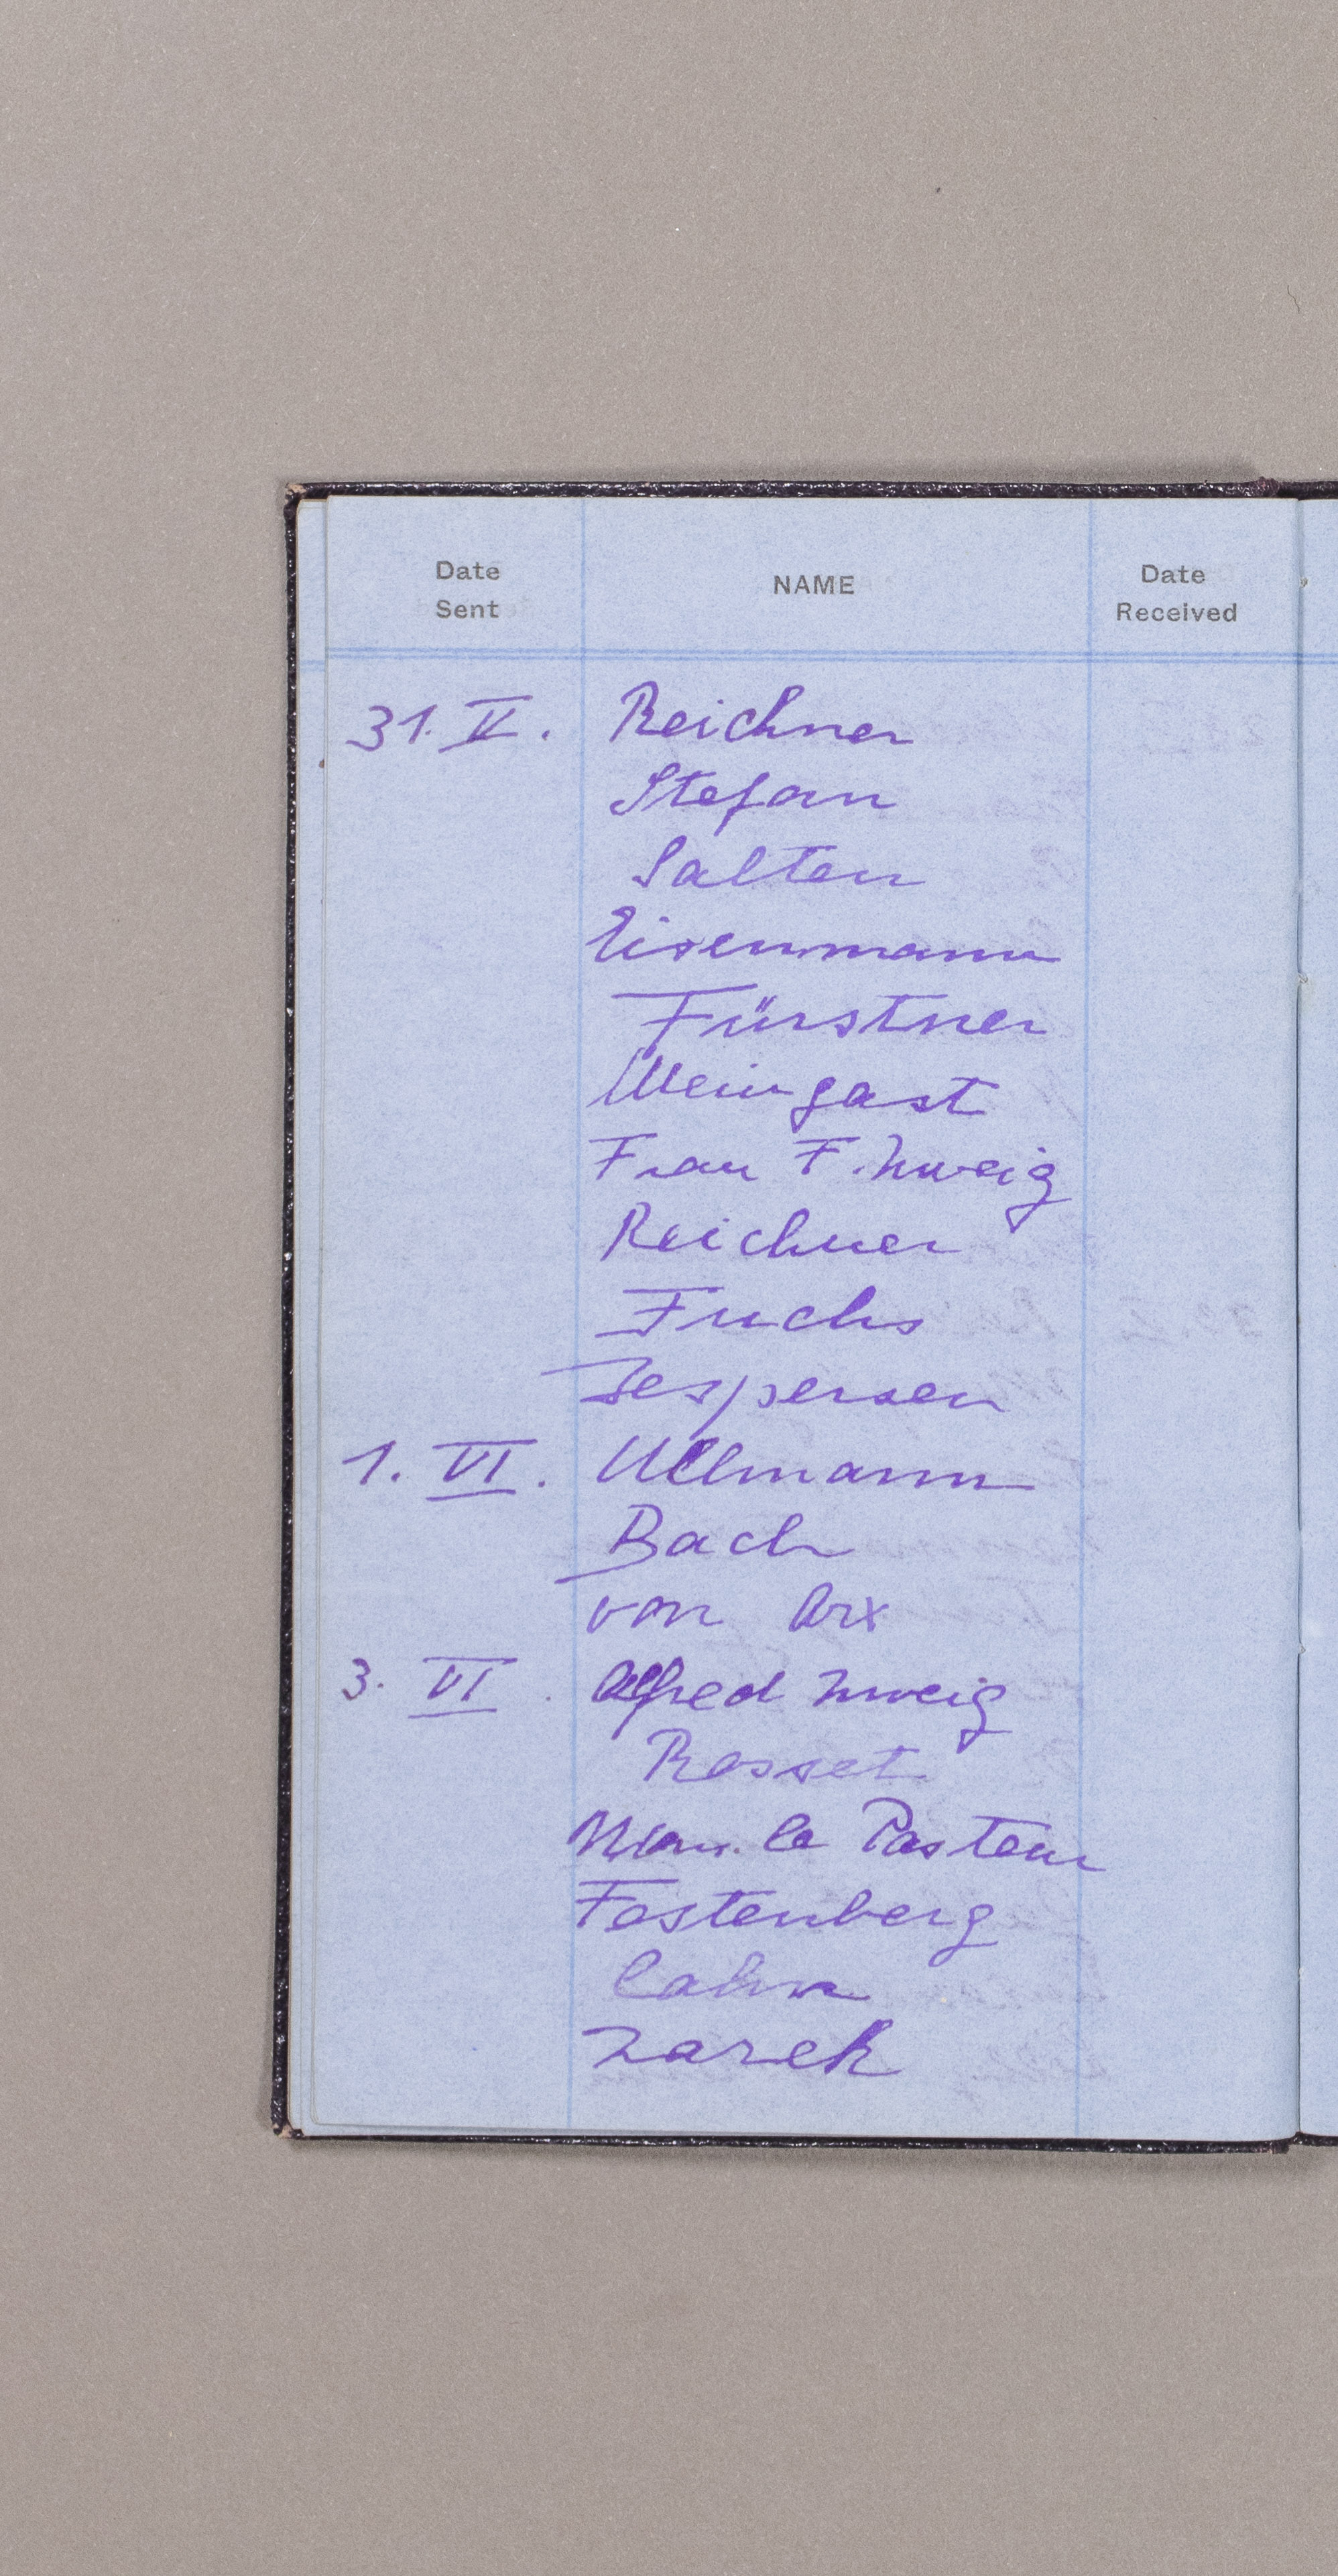 Date Sent NAME Date Received
31. V. Reichner
Stefan
Salten
Eisenmann
Fürstner
Weingast
Frau F. Zweig
Reichner
Fuchs
Jespersen
1. VI. Ullmann
Bach
von Arx
3. VI. Alfred Zweig
Rosset
le Pasteur
Festenberg
Cahn
Zarek